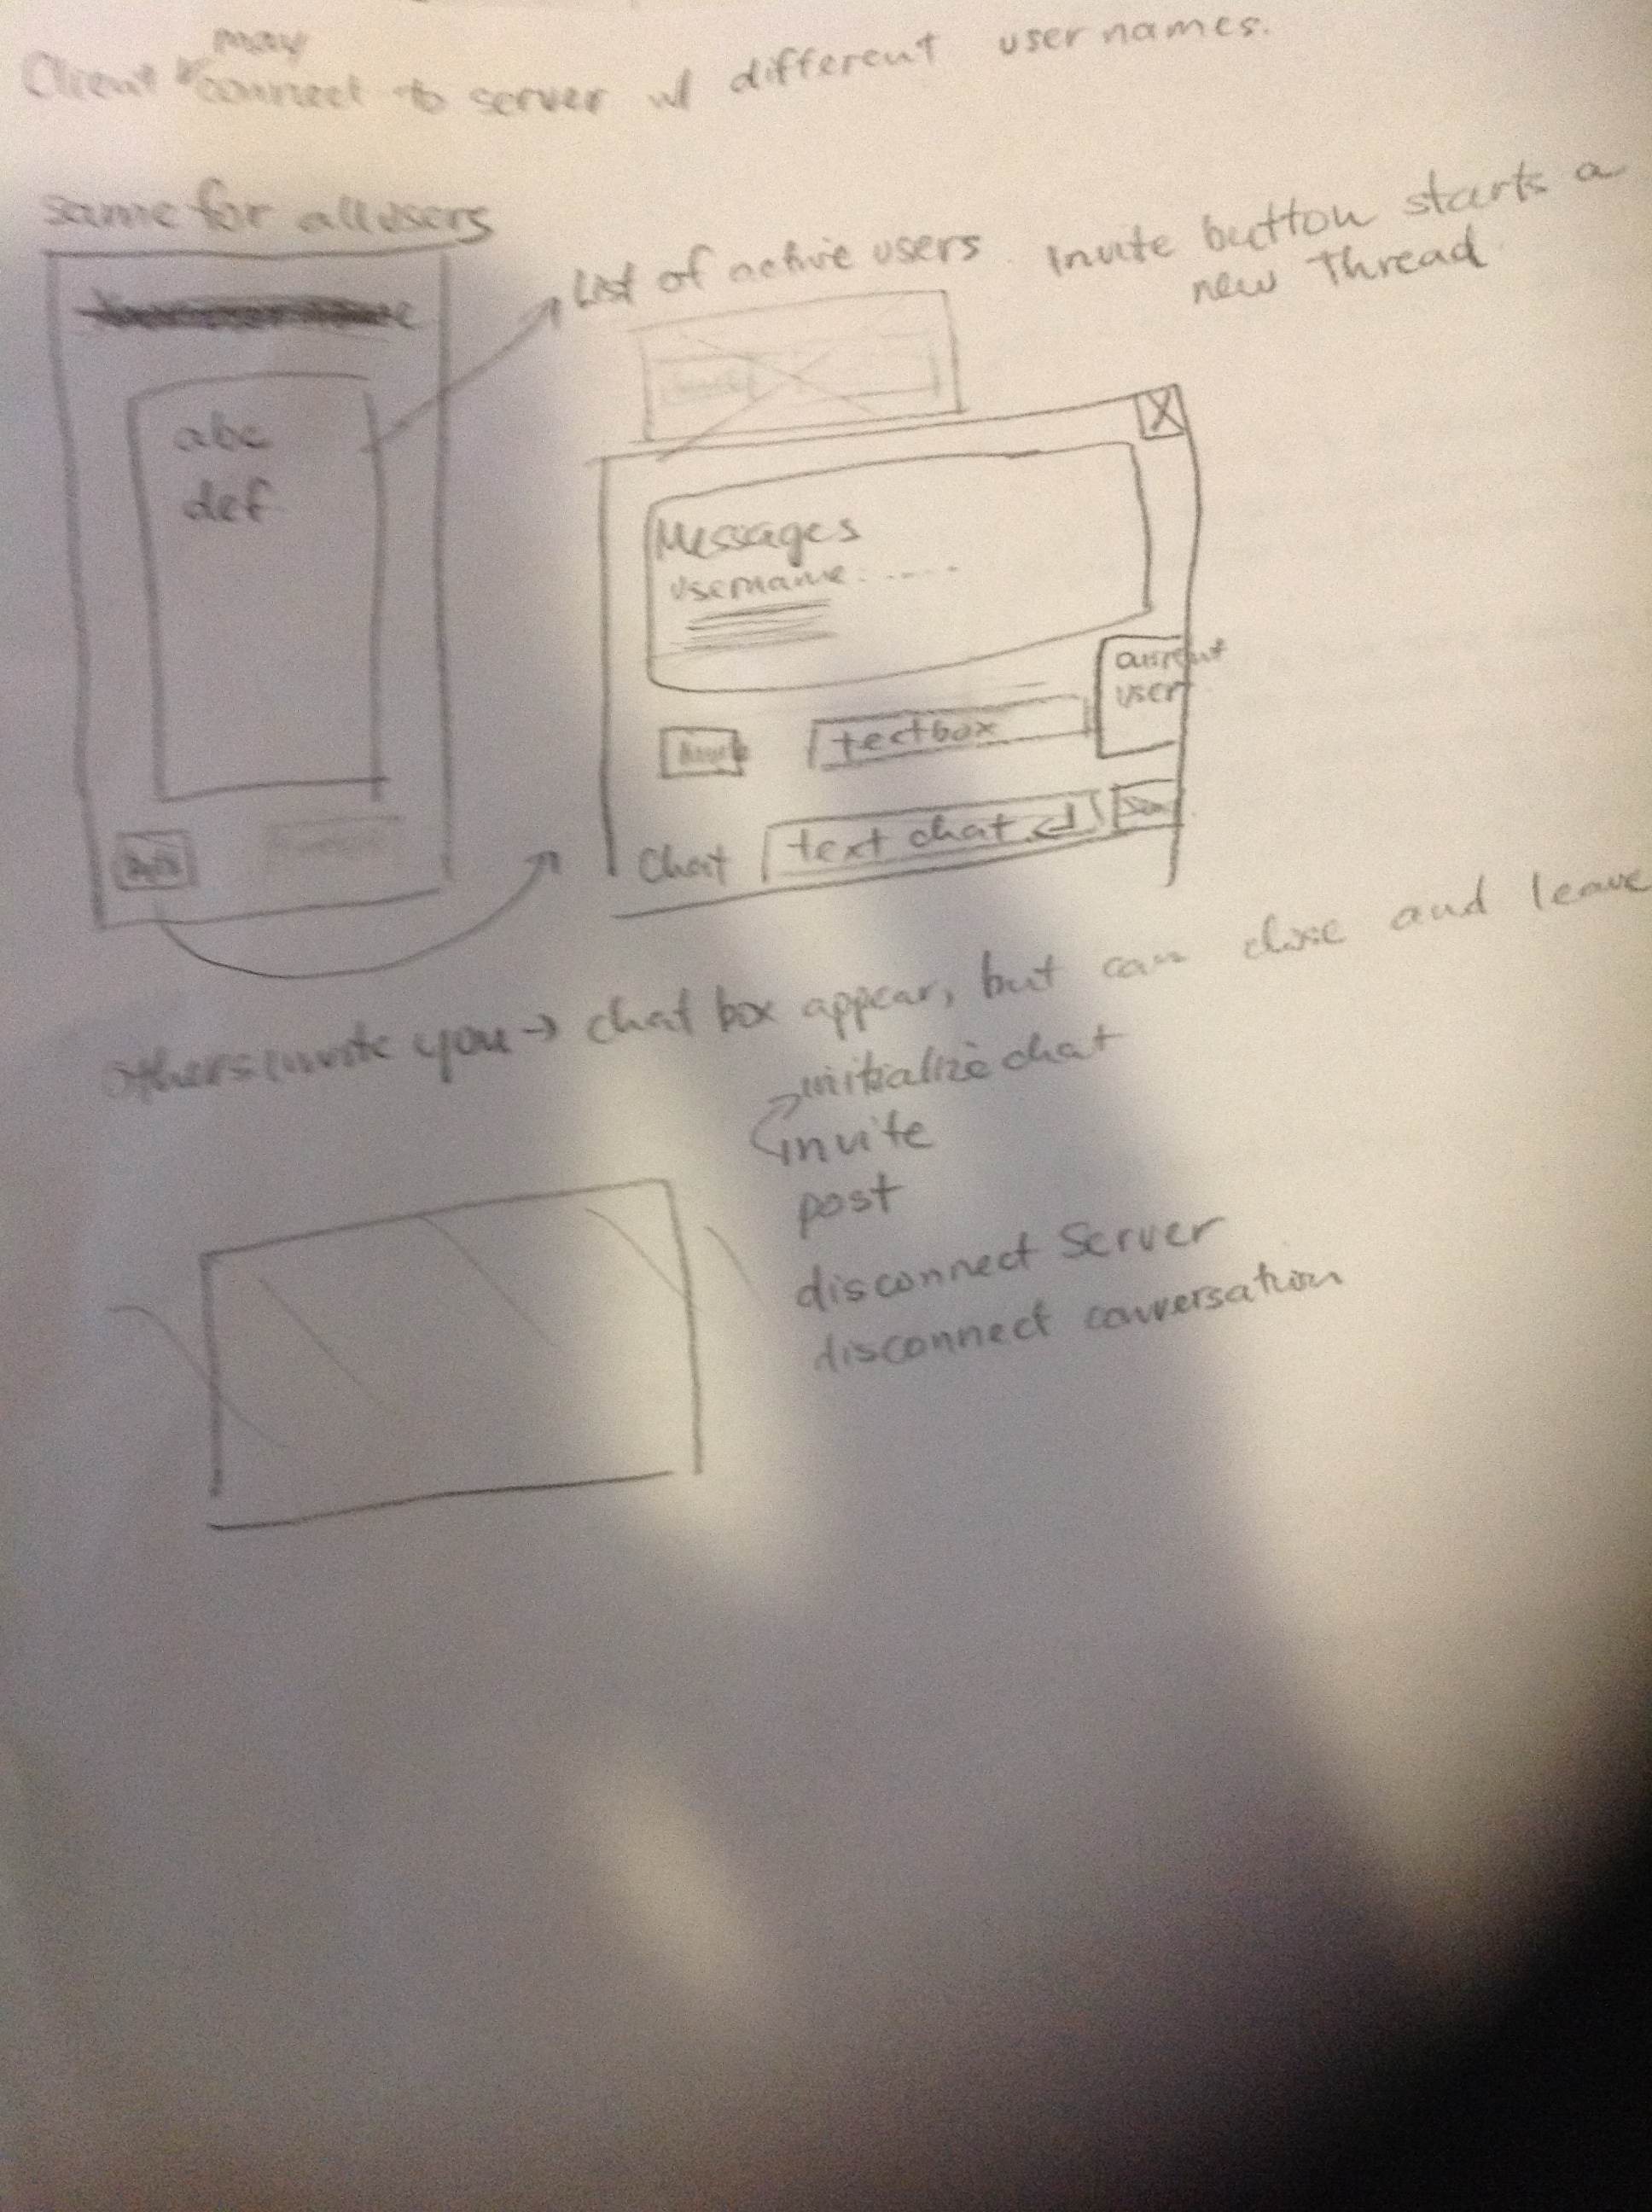 may
Client connect to server w/ different usernames.
same for all users
List of active users. Invite button starts a
new thread
abc
def
X
Messages
username: .....
current
user
textbox
Chat
text chat
others invite you → chat box appear, but can close and leave
initialize chat
invite
post
disconnect Server
disconnect conversation